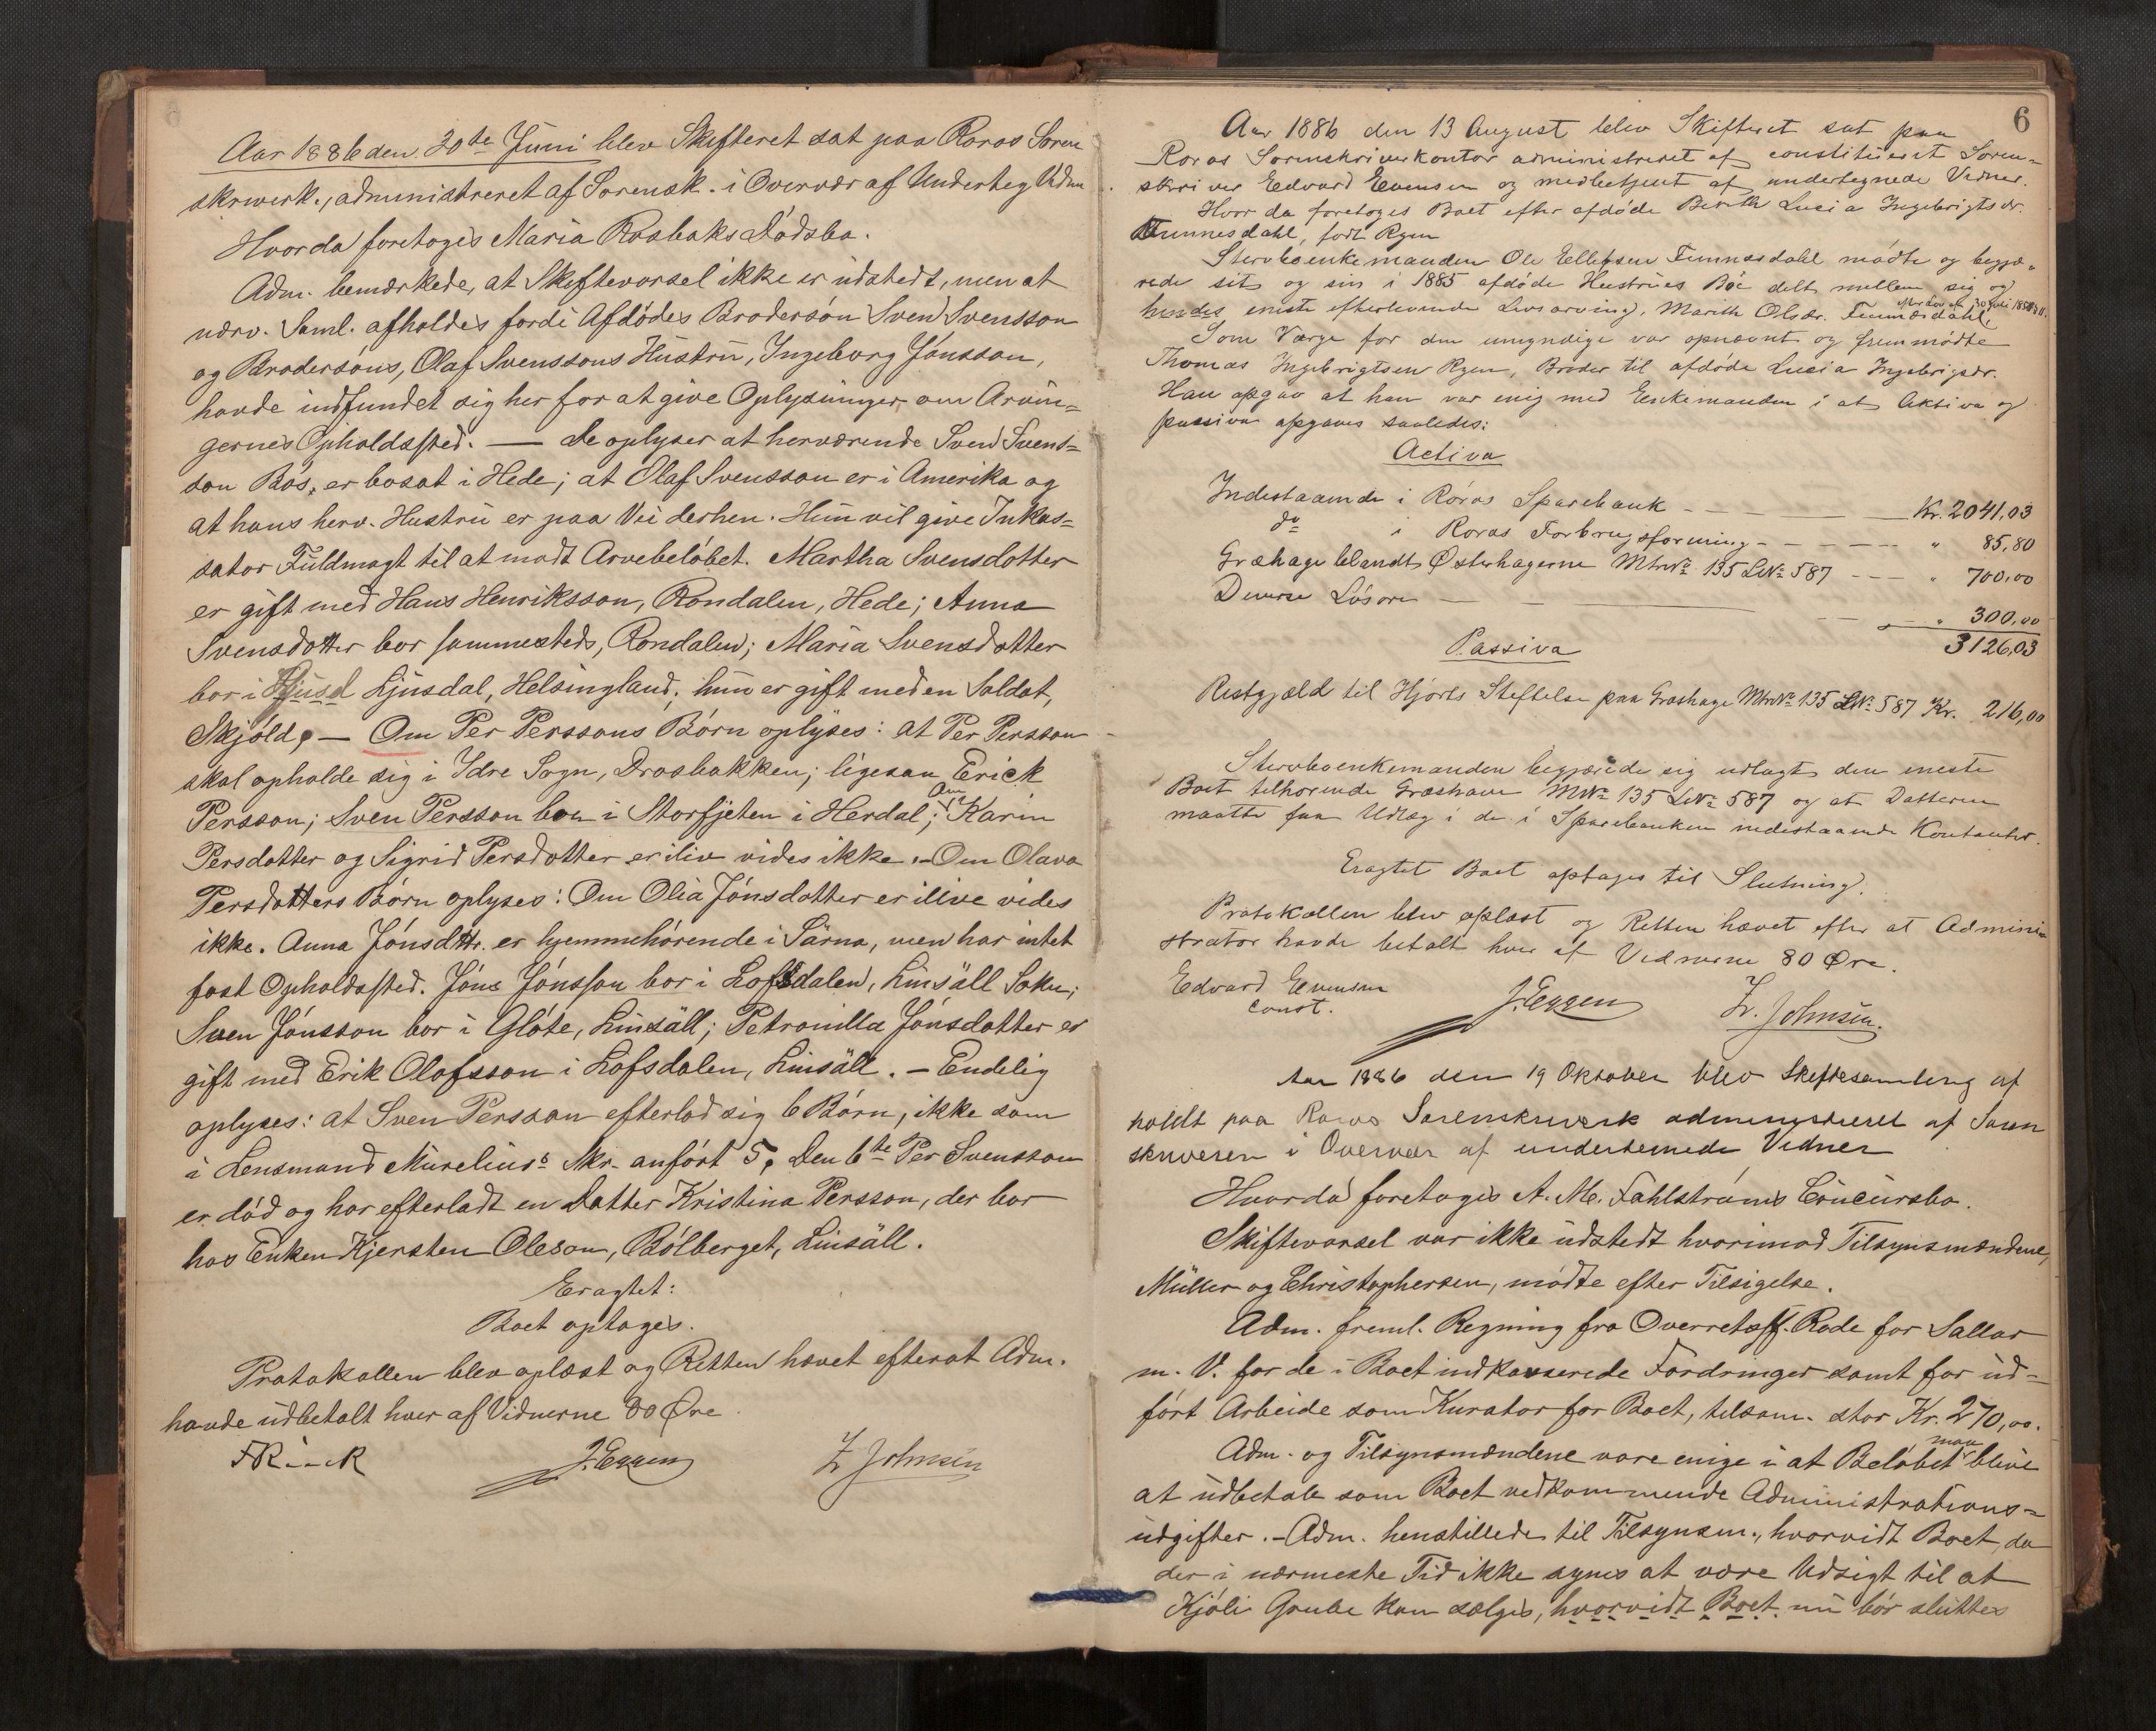 Aar 1886 den 30te Juni blev Skifteret sat paa Røros Soren
skrwerk., administreret af Sorensk. i Overvær af Underteg Vidn
Hvorda foretoges Maria Rosbaks Dødsbo.
Adm. bemærkede, at Skiftevarsel ikke er udstedt, men at
nærv. Saml. afholdes fordi Afdødes Brodersøn Sven Svensson
og Brodersøns, Olaf Svenssons Hustru, Ingeborg Jónsson,
havde indfundet sig her for at give Oplysninger om Arvin=
gernes Opholdssted. — De oplyser at herværende Sven Svens=
son Bós, er bosat i Hede; at Olaf Svensson er i Amerika og
at hans herv. Hustru er paa Vei derhen. Hun vil give Inkas=
sator Fuldmagt til at modt Arvebeløbet. Martha Svensdotter
er gift med Hans Henriksson, Rondalen, Hede; Anna
Svensdotter bor sammesteds, Rondalen; Maria Svensdotter
bor i Ljusdal, Helsingland; hun er gift med en Soldat,
Skjöld. — Om Per Perssons Børn oplyses: at Per Persson
skal opholde sig i Idre Sogn, Drosbakken; ligesaa Erick
Persson; Sven Persson bor i Storfjeten i Herdal; Om Karin
Persdotter og Sigrid Persdotter er iliv vides ikke. – Om Olava
Persdotters Børn oplyses: Om Olia Jónsdotter er ilive vides
ikke. Anna Jónsdttr. er hjemmehørende i Särna, men har intet
fast Opholdssted. Jóns Jónsson bor i Lofsdalen, Linsäll Sokn;
Sven Jónsson bor i Glóte, Linsäll; Petronilla Jónsdotter er
gift med Erik Olofsson i Lofsdalen, Linsäll. – Endelig
oplyses: at Sven Persson efterlod sig 6 Børn, ikke som
i Lensmand Murelius's Skr. anført 5. Den 6te Per Svensson
er død og har efterladt en Datter Kristina Persson, der bor
hos Enken Kjersten Oleson, Bólberget, Linsäll.
Eragtet:
Boet optages.
Protokollen blev oplæst og Retten hævet efterat Adm.
havde udbetalt hver af Vidnerne 80 Øre.
J. Eggen Z. Johnsen
6
Aar 1886 den 13 August blev Skifteret sat paa
Roros Sorenskriverkontor administreret af constitueret Soren=
skriver Edvard Evensen og medbetjent af undertegnede Vidner.
Hvor da foretoges Boet efter afdøde Berith Lucia Ingebrigtsdr.
Femnesdahl, født Ryen
Stervboenkemanden Ole Ellefsen Femnæsdahl mødte og begjæ=
rede sit og sin i 1885 afdøde Hustrues Bo delt mellem sig og
hendes eneste efterlevende Livsarving, Marith Olsdr. Femnæsdahl,
Som Værge for den umyndige var opnævnt og fremmødte
Thomas Ingebrigtsen Ryen, Broder til afdøde Lucia Ingebrigsdr.
Han opgav at han var enig med Enkemanden i at Aktiva og
passiva opgaves saaledes:
Activa
Indestaaende i Røros Sparebank - - - Kr. 2041,03
do i Roros Forbrugsforening - - - - " 85,80
Græhage blandt Østerhagerne MtrN: 135 LN: 587 - - - " 700,00
Diverse Løsøre - - - " 300,00
3126,03
Passiva
Restgjæld til Hjorts Stiftelse paa Græshage MtrN: 135 LN: 587 Kr. 216,00
Stervboenkemanden begjærede sig udlagt den eneste
Boet tilhorende Græshave MN: 135 LN: 587 og at Datteren
maatte faa Udlæg i de i Sparebanken indestaaende Kontanter.
Eragtet Boet optages til Slutning.
Protokollen blev oplæst og Retten hævet efter at Admini=
strator havde betalt hver af Vidnerne 80 Øre.
Edvard Evensen
const. J. Eggen Z. Johnsen.
Aar 1886 den 19 Oktober blev Skiftesamling af
holdt paa Røros Sorenskriverk administreret af Soren
skriveren i Overvær af undertegnede Vidner
Hvorda foretoges A. M. Fahlstrøms Concursbo.
Skiftevarsel var ikke udstedt hvorimod Tilsynsmændene,
Müller og Christophersen, mødte efter Tilsigelse.
Adm. freml. Regning fra Overretssf. Rode for Sallar
m. V. for de i Boet indkasserede Fordringer samt for ud=
ført Arbeide som Kurator for Boet, tilsam. stor Kr. 270,00.
Adm. og Tilsynsmændene vare enige i at Beløbet maa blive
at udbetale som Boet vedkommende Administrations=
udgifter. – Adm. henstillede til Tilsynsm., hvorvidt Boet, da
der i nærmeste Tid ikke synes at være Udsigt til at
Kjøli Grube kan sælges, hvorvidt Boet nu bør sluttes